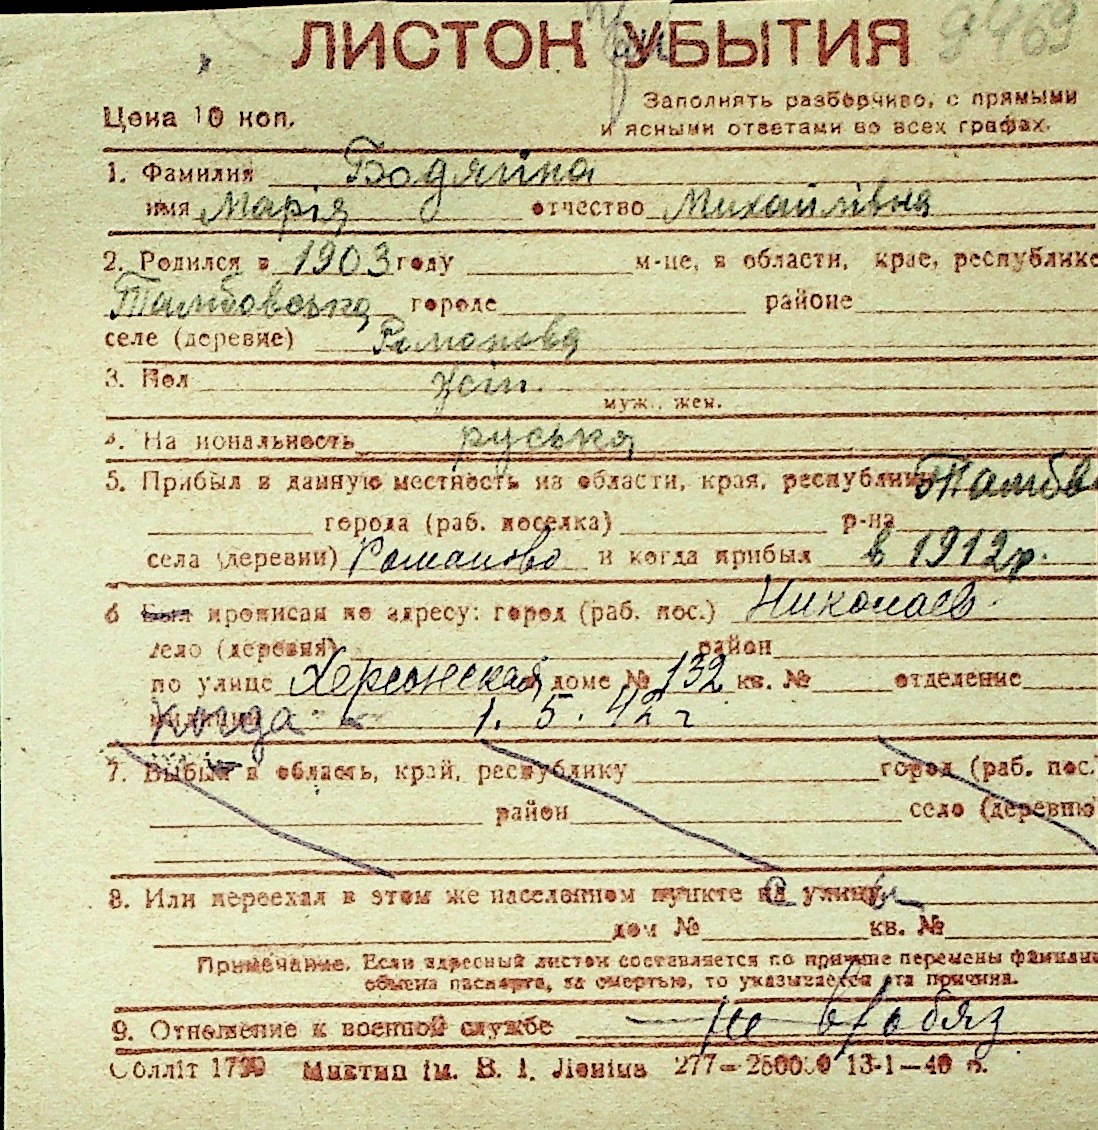 9469
ЛИСТОК УБЫТИЯ
Цена 10 коп.
Заполнять разборчиво, с прямыми
и ясными ответами во всех графах.
1. Фамилия Бодягіна
имя Марія отчество Михайлівна
2. Родился в 1903 году м-це, в области, крае, республике
Тамбовська городе районе
селе (деревне) Романова
3. Пол жін.
муж., жен.
4. Национальность руська
5. Прибыл в данную местность из области, края, республики Тамбов
города (раб. поселка) р-на
села (деревни) Романово и когда прибыл в 1912 р.
6 Был прописан по адресу: город (раб. пос.) Николаев.
село (деревня) район
по улице Херсонская доме № 132 кв. № отделение
Когда 1. 5. 42 г
7. Выбыл в область, край, республику город (раб. пос.)
район село (деревню)
8. Или переехал в этом же населенном пункте на улицу
дом № кв. №
Примечание. Если адресный листок составляется по причине перемены фамилии
обмена паспорта, за смертью, то указывается эта причина.
9. Отношение к военной службе не
Облліт 1790 Миктип ім. В. І. Леніна 277—250000 13-1—40 р.